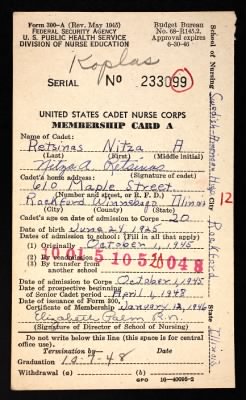 Form 300-A (Rev. May 1945)
FEDERAL SECURITY AGENCY
U. S. PUBLIC HEALTH SERVICE
DIVISION OF NURSE EDUCATION
Budget Bureau
No. 68-R145.2.
Approval expires
6-30-46
Koplas
SERIAL No 233099
UNITED STATES CADET NURSE CORPS
MEMBERSHIP CARD A
Name of Cadet:
Retsinas Nitza A
(Last) (First) (Middle initial)
Nitza A. Retsinas
Cadet's home address: (Signature of cadet)
610 Maple Street
(Number and street, or R. F. D.)
Rockford Winnebago Illinois
(City) (County) (State)
Cadet's age on date of admission to Corps 20
Date of birth June 24, 1925
Dates of admission to school: (Fill in all that apply)
(1) Originally October 1, 1945
(2) By readmission
(3) By transfer from
another school
10 01 5 10 5 2 04 8
Date of admission to Corps October 1, 1945
Date of prospective beginning
of Senior Cadet period April 1, 1948
Date of issuance of Form 300,
Certificate of Membership January 12, 1946
Elizabeth Palm R.N.
(Signature of Director of School of Nursing)
Do not write below this line (this space for central
office use).
Termination by Date
Graduation 10-7-48
Withdrawal (a) (b)
GPO 16-40095-2
School of Nursing Swedish American Hosp. Rockford State Illinois
12